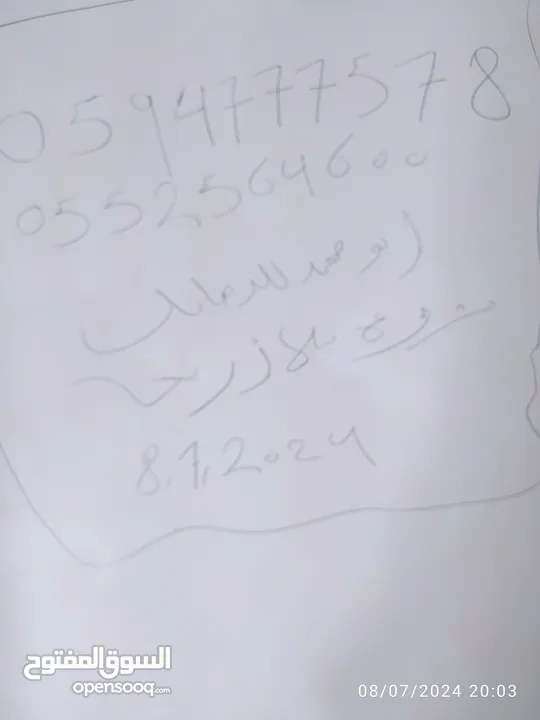 0594777578
0552564600
ابو محمد للدهانات
8.7.2024
السوق المفتوح
opensooq.com
08/07/2024 20:03